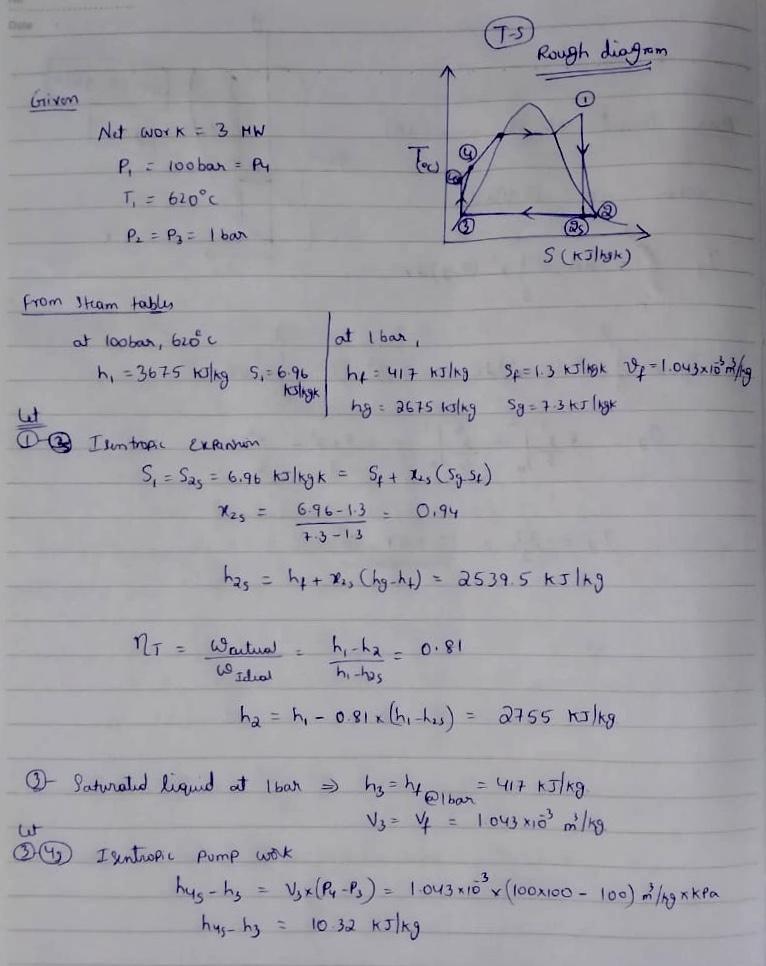 Date
T-S
Rough diagram
Given
Net work = 3 MW
P₁ = 100bar = P₄
T₁ = 620°c
P₂ = P₃ = 1 bar
T(°C)
①
④
4s
③
②
2s
S (KJ/kgk)
From Steam tables
at 100bar, 620°c
h₁ = 3675 KJ/kg S₁ = 6.96 KJ/kgk
at 1 bar,
hf = 417 KJ/kg Sf = 1.3 KJ/kgk Vf = 1.043x10⁻³ m³/kg
hg = 2675 KJ/kg Sg = 7.3 KJ/kgk
Let
①-2s Isentropic Expansion
S₁ = S₂s = 6.96 KJ/kgk = Sf + x₂s (Sg-Sf)
x₂s = (6.96-1.3)/(7.3-1.3) = 0.94
h₂s = hf + x₂s (hg-hf) = 2539.5 KJ/kg
ηT = Wactual/W Ideal = (h₁-h₂)/(h₁-h₂s) = 0.81
h₂ = h₁ - 0.81 x (h₁-h₂s) = 2755 KJ/kg
③- Saturated liquid at 1bar ⇒ h₃ = hf @1bar = 417 KJ/kg
V₃ = Vf = 1.043x10⁻³ m³/kg
Let
③-4s Isentropic pump work
h₄s - h₃ = V₃x(P₄-P₃) = 1.043x10⁻³ x (100x100 - 100) m³/kg x kPa
h₄s - h₃ = 10.32 KJ/kg